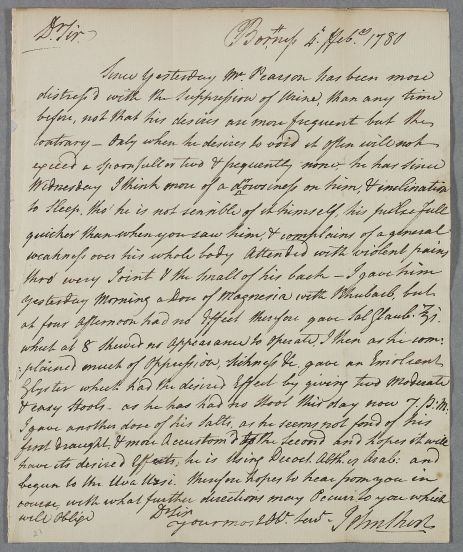 Dr. Sir
Bo'ness 4th Feb.ry 1780
Since Yesterday Mr. Pearson has been more
distress'd with the Suppression of Urine, than any time
before, not that his desires are more frequent but the
contrary – Only when he desires to void it often will not
exceed a spoonfull or two & frequently none he has since
Wednesday I think more of a drowsiness on him, & inclination
to Sleep, tho' he is not sensible of it himself, his pulse full
quicker than when you saw him, & complains of a general
weakness over his whole body attended with violent pains
thro every Joint & the small of his back – I gave him
Yesterday Morning a dose of Magnesia with Rhubarb, but
at four Afternoon had no Effect therefore gave Sal Glaub: ℥i.
what at 8 shewed no appearance to operate. I then as he com:
:plained much of Oppression, Sickness &c, gave an Emolient
Glyster which had the desired Effect by giving two Moderate
& easy Stools – as he has had no Stool this day now 7. P: M.
I gave another dose of his Salts, as he seems not fond of his
first draught, & more Accustom'd to the second and hopes it will
have its desired Effects, he is using Decoct. Alth. and
begun to the Uva Ursi. therefore hopes to hear from you in
course, with what further directions may Occur to you which
will Oblige
Dr. Sir
your most Obt. Servt.
John